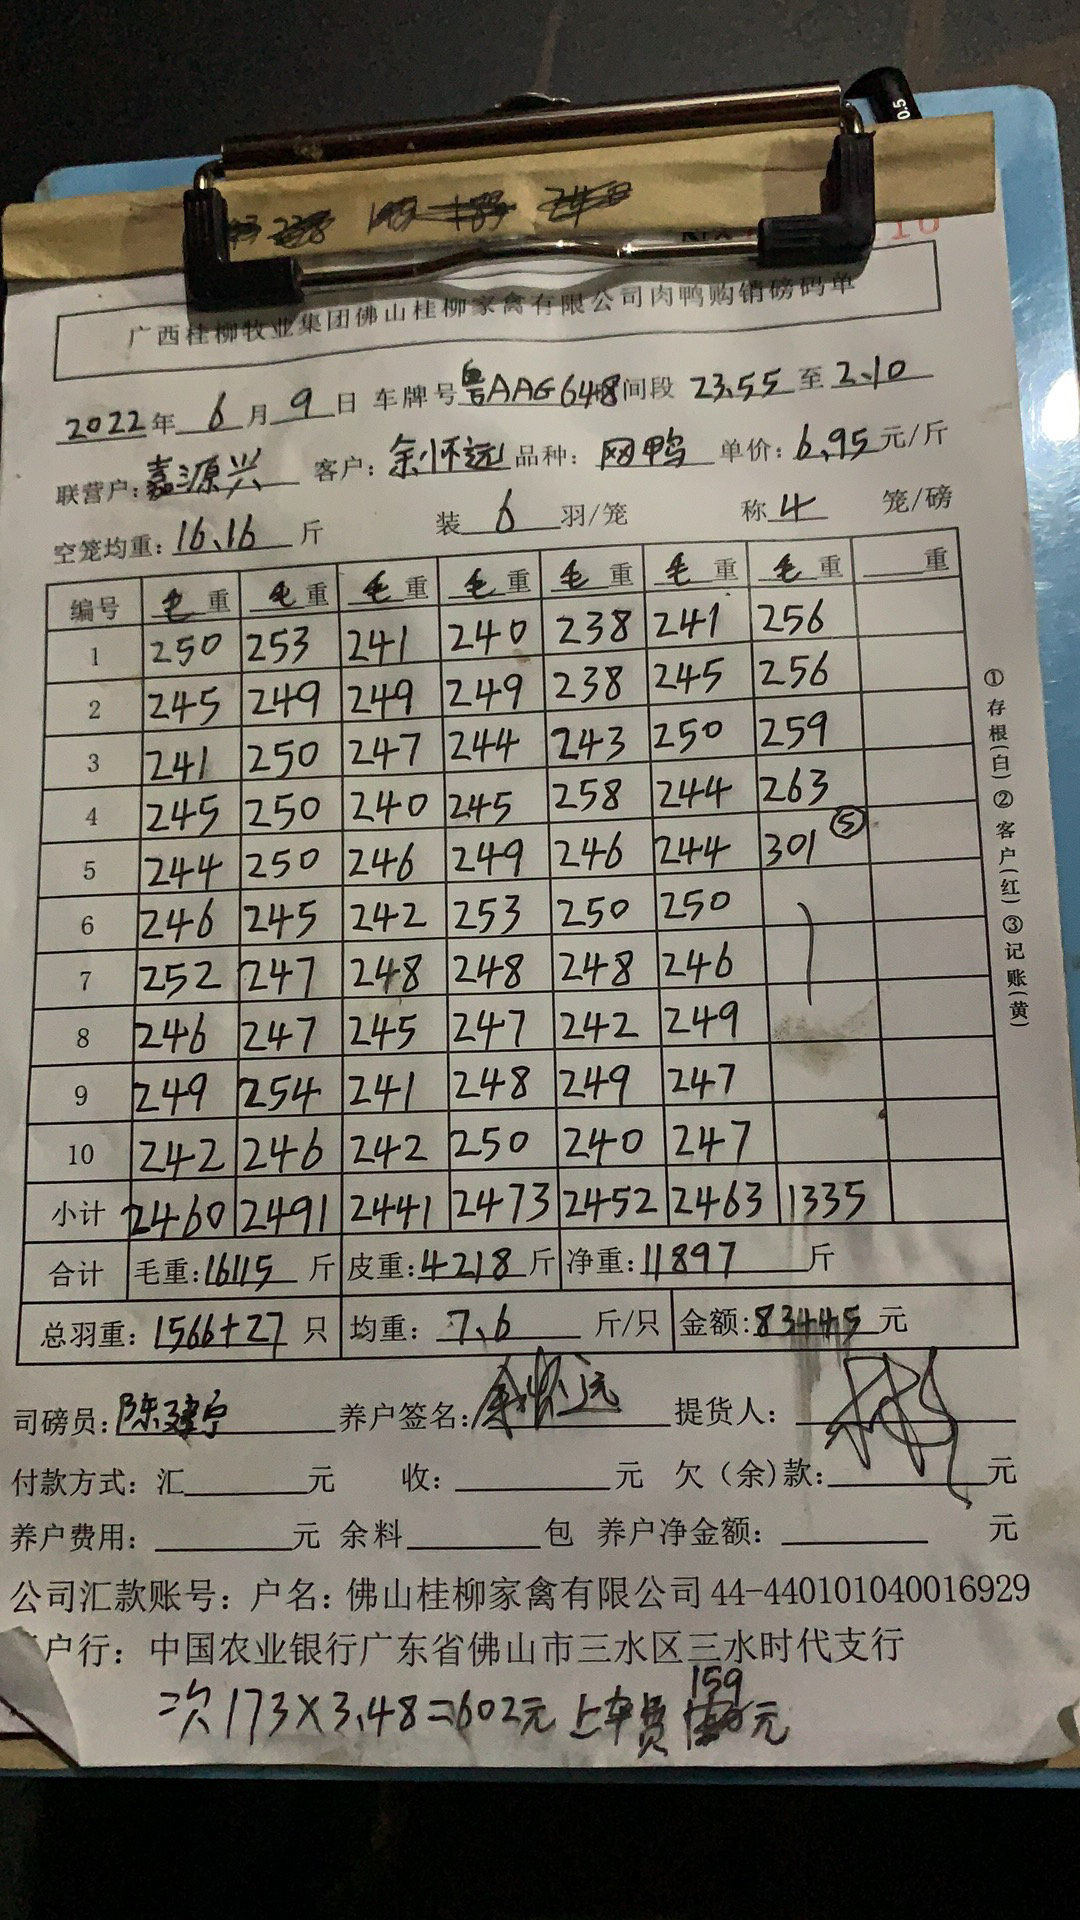 0.5
10
广西桂柳牧业集团佛山桂柳家禽有限公司肉鸭购销磅码单
2022年 6月 9日 车牌号 粤AAG648 间段 23.55至 2.10
联营户: 嘉源兴 客户: 余怀远 品种: 网鸭 单价: 6.95元/斤
空笼均重: 16.16 斤 装 6 羽/笼 称 4 笼/磅
编号 毛重 毛重 毛重 毛重 毛重 毛重 毛重 重
1 250 253 241 240 238 241 256
2 245 249 249 249 238 245 256
3 241 250 247 244 243 250 259
4 245 250 240 245 258 244 263
5 244 250 246 249 246 244 301 ⑤
6 246 245 242 253 250 250
7 252 247 248 248 248 246
8 246 247 245 247 242 249
9 249 254 241 248 249 247
10 242 246 242 250 240 247
小计 2460 2491 2441 2473 2452 2463 1335
合计 毛重: 16115 斤 皮重: 4218 斤 净重: 11897 斤
总羽重: 1566+27 只 均重: 7.6 斤/只 金额: 83445 元
司磅员: 陈建宁 养户签名: 余怀远 提货人:
付款方式: 汇 元 收: 元 欠(余)款: 元
养户费用: 元 余料 包 养户净金额: 元
公司汇款账号: 户名: 佛山桂柳家禽有限公司 44-440101040016929
户行: 中国农业银行广东省佛山市三水区三水时代支行
次173×3.48=602元 上车费 159元
①存根(白)②客户(红)③记账(黄)